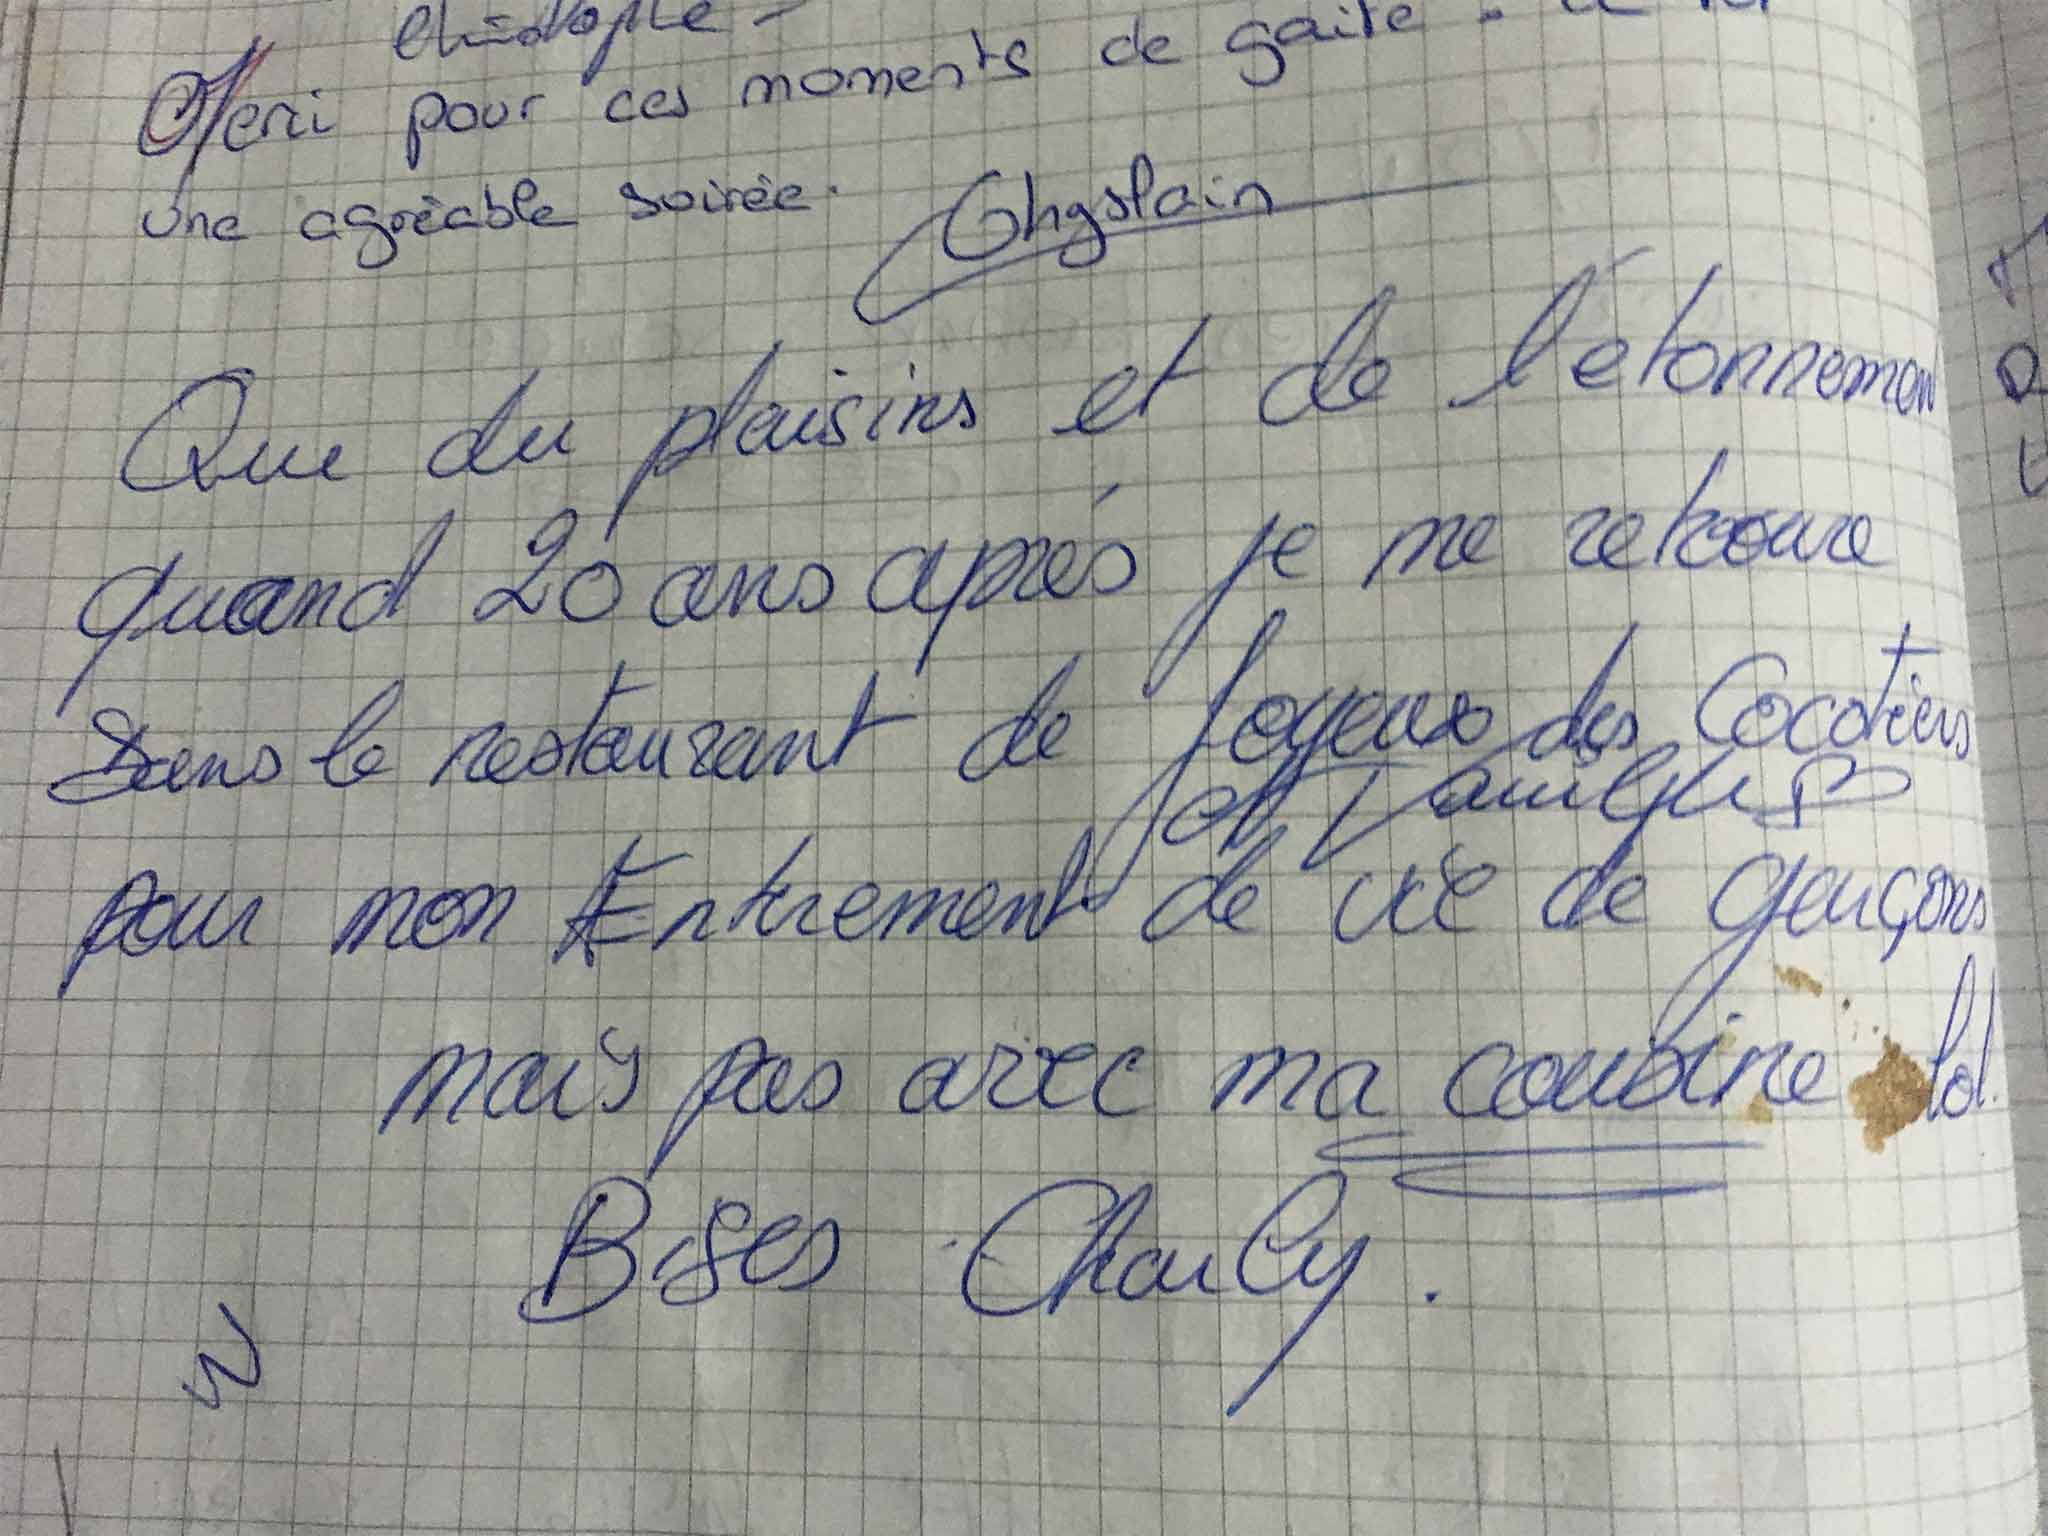 Christophe -
Merci pour ces moments de gaité.
une agréable soirée. Ghyslain
Que du plaisirs et de l'étonnemen
quand 20 ans aprés je me retrouve
Dans le restaurant de Joyeux des Cocotiers
et
pour mon Entrement de vie de garçons
mais pas avec ma cousine lol.
Bises Charly.